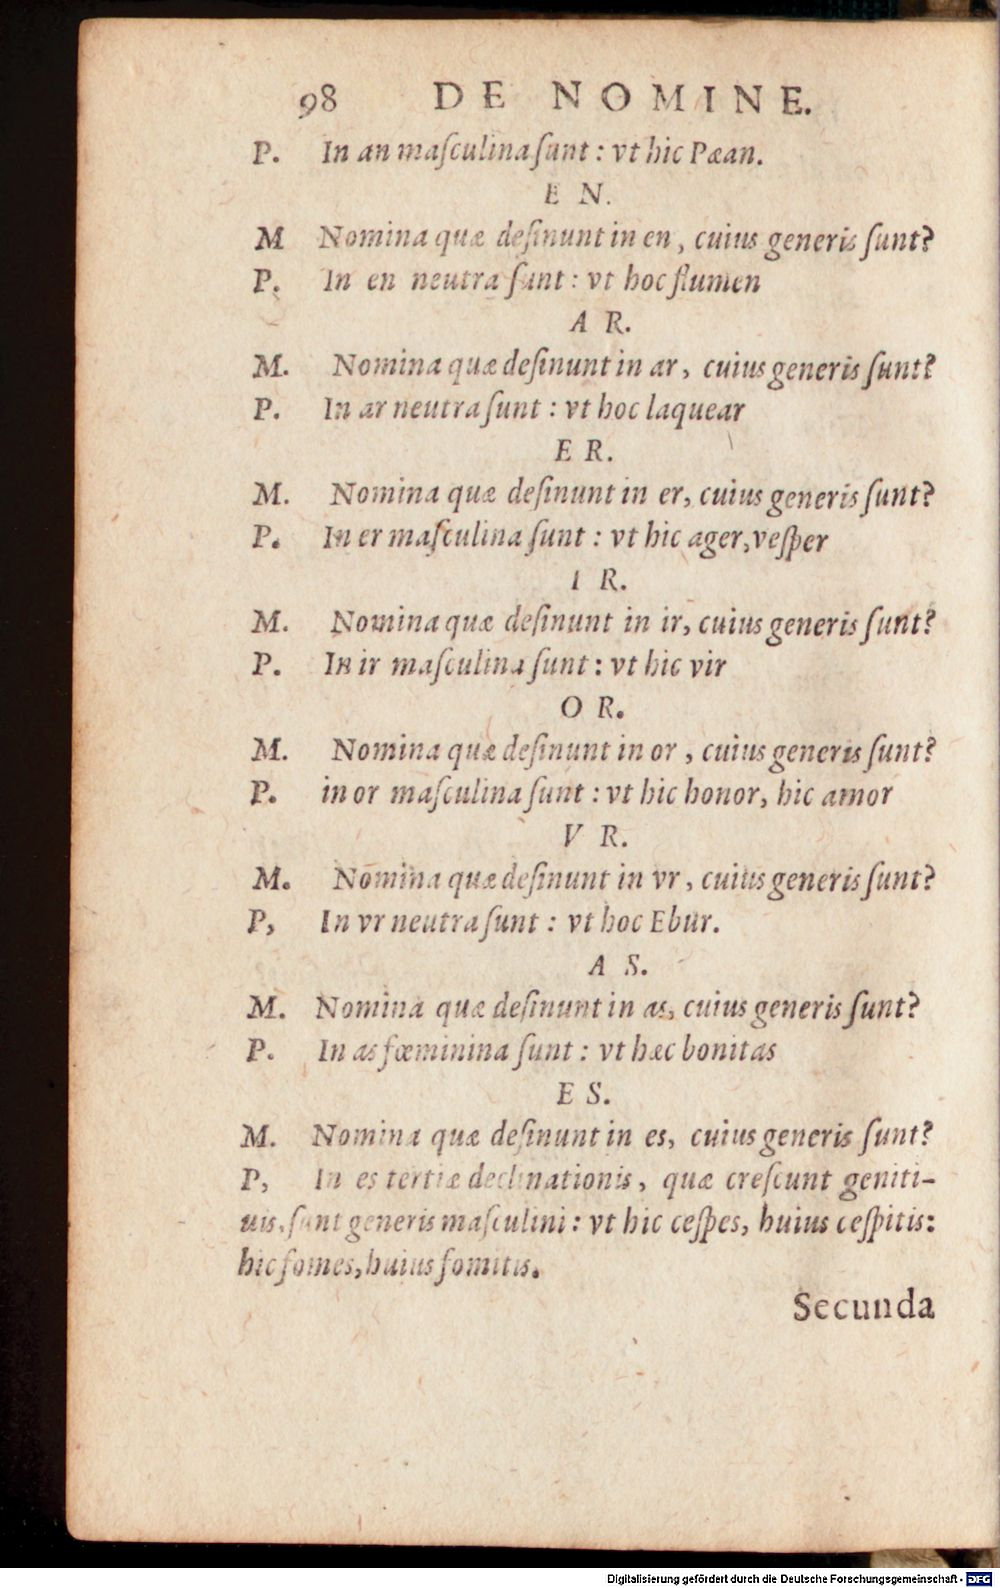 98 DE NOMINE.
P. In an maſculina ſunt : vt hic Pæan.
E N.
M Nomina quæ deſinunt in en, cuius generis ſunt?
P. In en neutra ſunt : vt hoc flumen
A R.
M. Nomina quæ deſinunt in ar, cuius generis ſunt?
P. In ar neutra ſunt : vt hoc laquear
E R.
M. Nomina quæ deſinunt in er, cuius generis ſunt?
P. In er maſculina ſunt : vt hic ager, veſper
I R.
M. Nomina quæ deſinunt in ir, cuius generis ſunt?
P. In ir maſculina ſunt : vt hic vir
O R.
M. Nomina quæ deſinunt in or , cuius generis ſunt?
P. in or maſculina ſunt : vt hic honor, hic amor
V R.
M. Nomina quæ deſinunt in vr , cuius generis ſunt?
P, In vr neutra ſunt : vt hoc Ebur.
A S.
M. Nomina quæ deſinunt in as, cuius generis ſunt?
P. In as fœminina ſunt : vt hæc bonitas
E S.
M. Nomina quæ deſinunt in es, cuius generis ſunt?
P, In es tertiæ declinationis, quæ creſcunt geniti-
uis, ſunt generis maſculini : vt hic ceſpes, huius ceſpitis:
hic fomes, huius fomitis.
Secunda
Digitalisierung gefördert durch die Deutsche Forschungsgemeinschaft - DFG